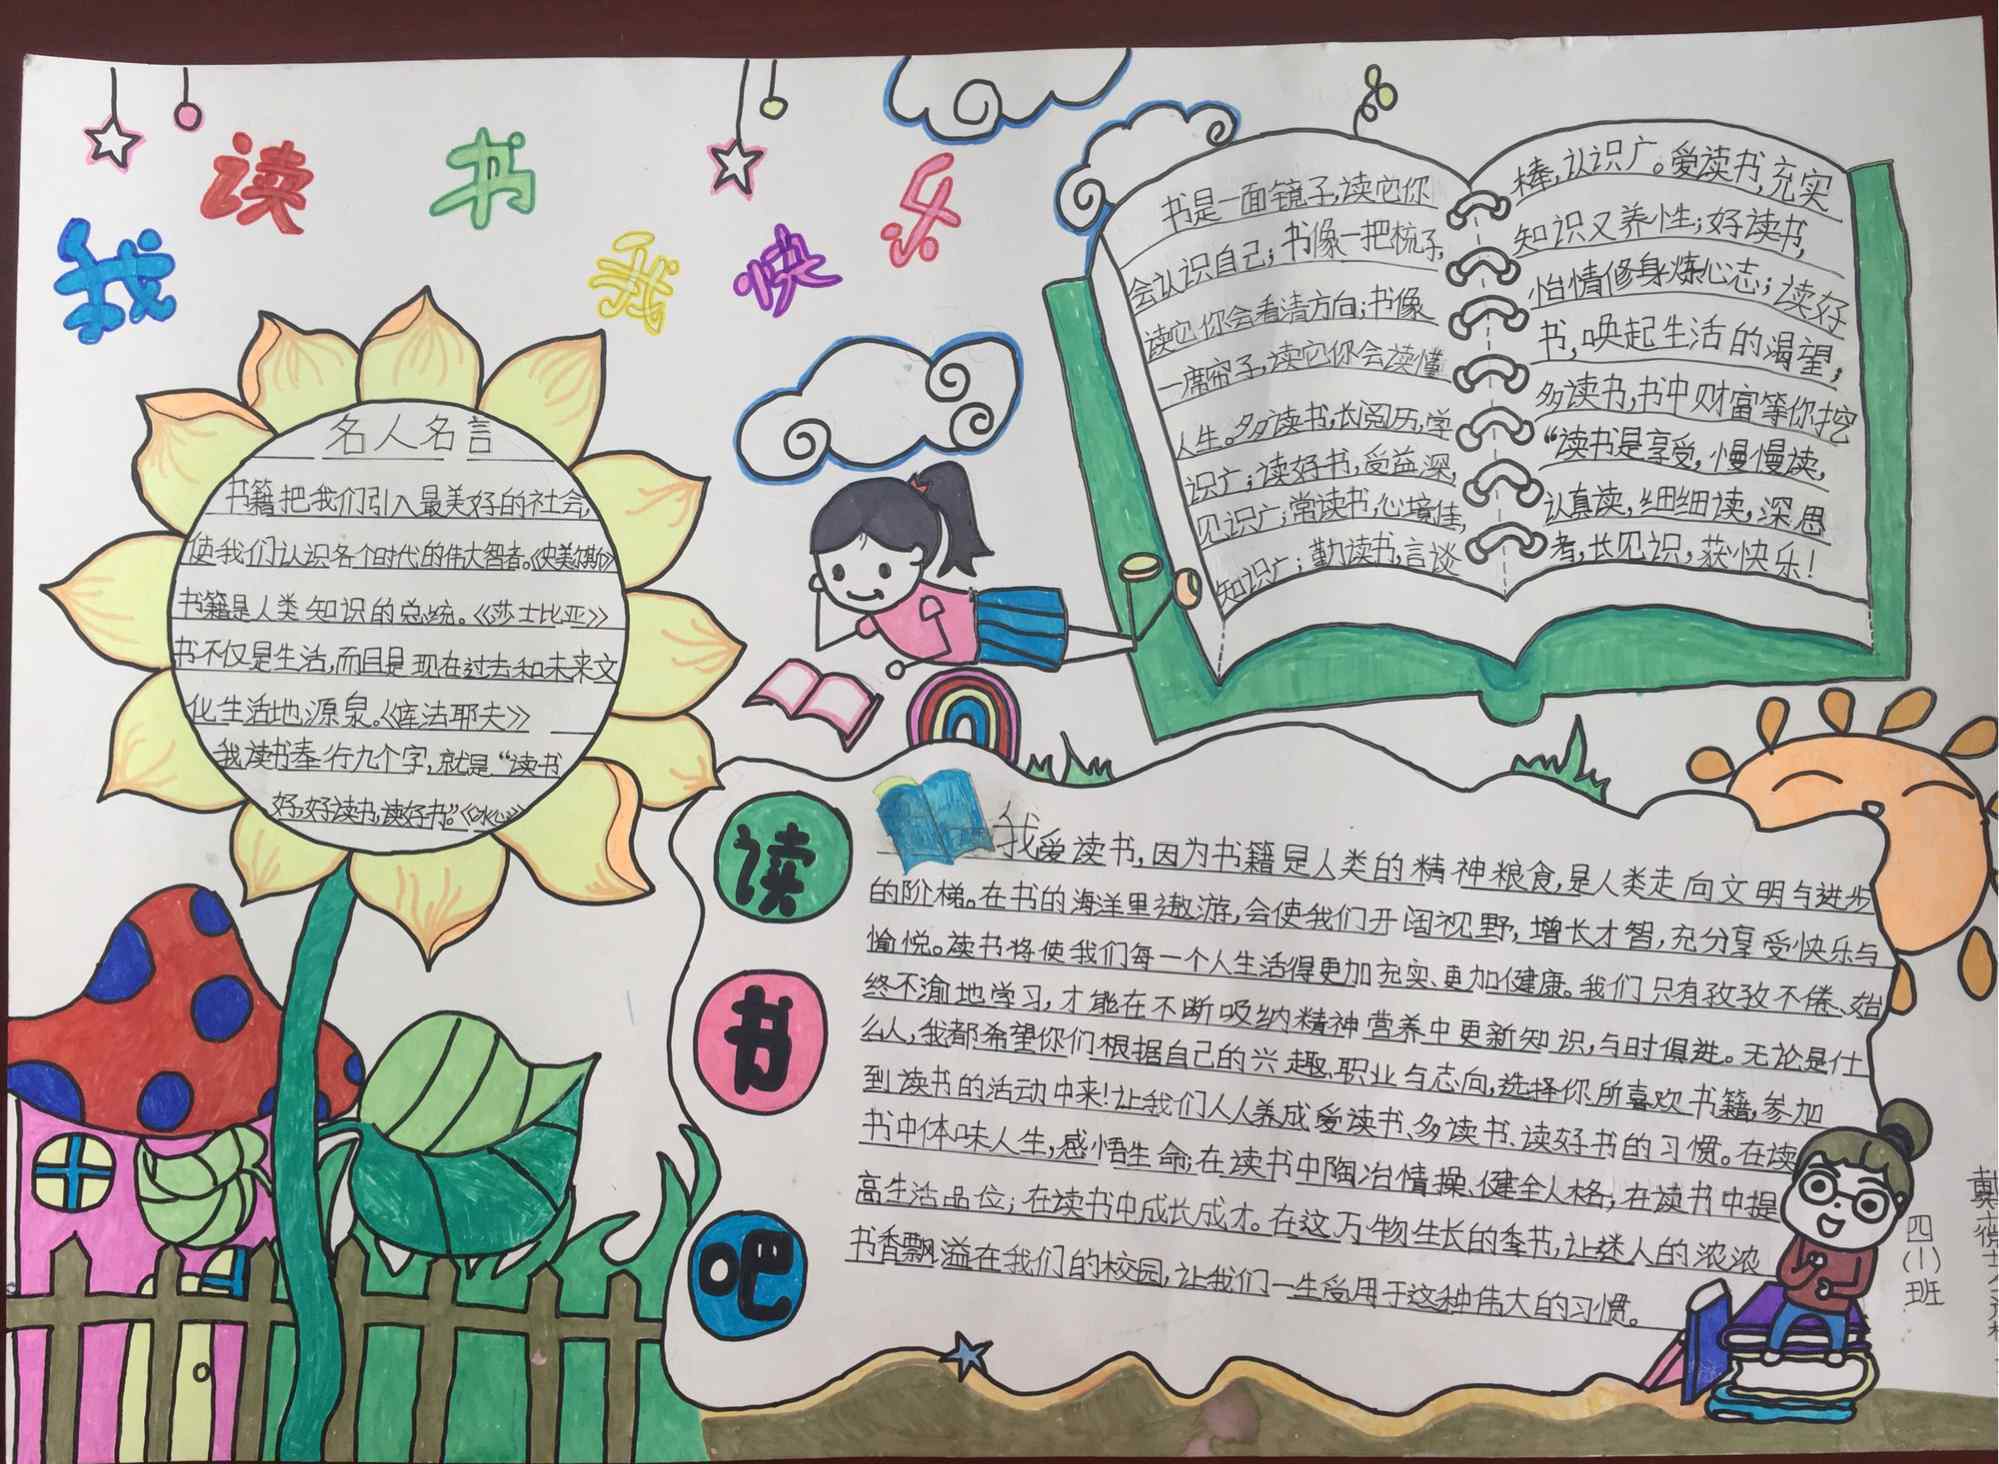 我读书我快乐
名人名言
书籍把我们引入最美好的社会,
使我们认识各个时代的伟大智者。《史美尔斯》
书籍是人类知识的总统。《莎士比亚》
书不仅是生活,而且是现在过去和未来文
化生活地源泉。《库法耶夫》
我读书奉行九个字,就是“读书
好,好读书,读好书。”《冰心》
书是一面镜子,读它你
会认识自己;书像一把梳子,
读它你会看清方向;书像
一席帘子,读它你会读懂
人生。多读书,长阅历,学
识广;读好书,受益深,
见识广;常读书,心境佳,
知识广;勤读书,言谈
棒,认识广。爱读书,充实
知识又养性;好读书,
怡情修身炼心志;读好
书,唤起生活的渴望;
多读书,书中财富等你挖
“读书是享受,慢慢读,
认真读,细细读,深思
考,长见识,获快乐!
读书吧
我爱读书,因为书籍是人类的精神粮食,是人类走向文明与进步
的阶梯。在书的海洋里遨游,会使我们开阔视野,增长才智,充分享受快乐与
愉悦。读书将使我们每一个人生活得更加充实、更加健康。我们只有孜孜不倦、始
终不渝地学习,才能在不断吸纳精神营养中更新知识,与时俱进。无论是什
么人,我都希望你们根据自己的兴趣、职业与志向,选择你所喜欢书籍,参加
到读书的活动中来!让我们人人养成爱读书、多读书、读好书的习惯。在读
书中体味人生,感悟生命;在读书中陶冶情操、健全人格;在读书中提
高生活品位;在读书中成长成才。在这万物生长的季节,让迷人的浓浓
书香飘溢在我们的校园,让我们一生受用于这种伟大的习惯。
四(1)班